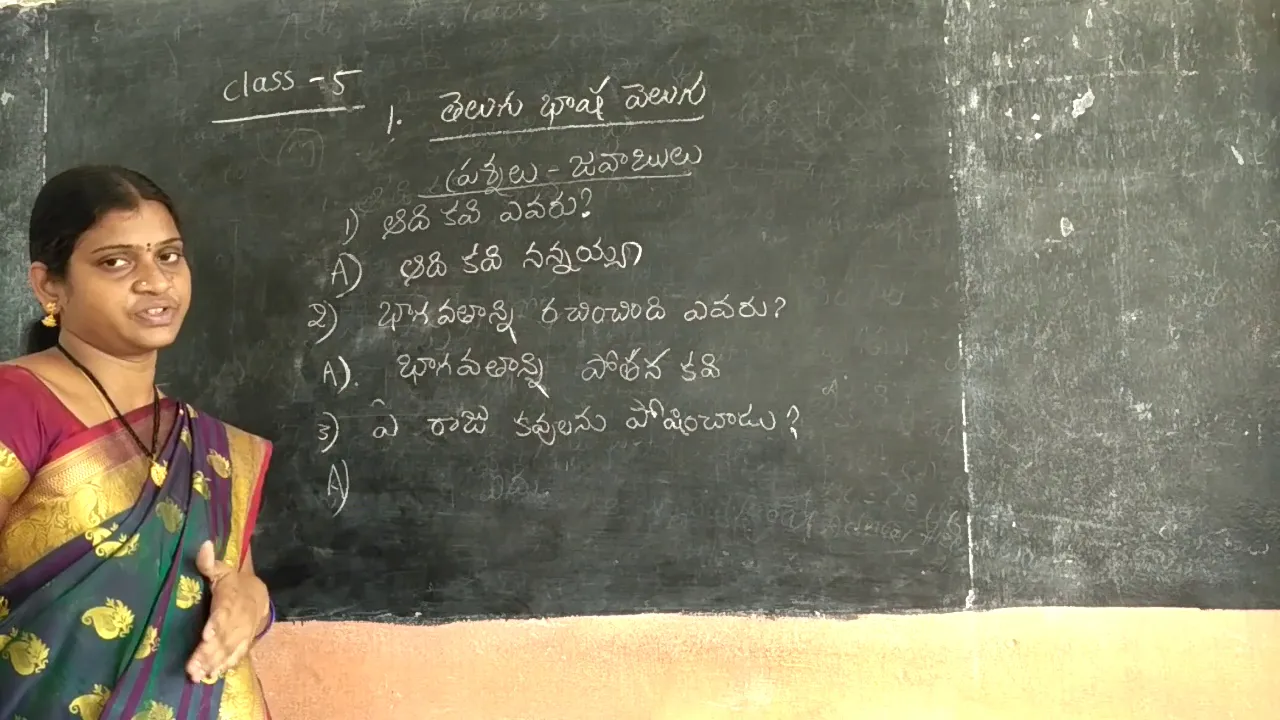 class - 5
1. తెలుగు భాష వెలుగు
ప్రశ్నలు - జవాబులు
1) ఆది కవి ఎవరు?
A) ఆది కవి నన్నయ్య
2) భాగవతాన్ని రచించింది ఎవరు?
A). భాగవతాన్ని పోతన కవి
3) ఏ రాజు కవులను పోషించాడు?
A)